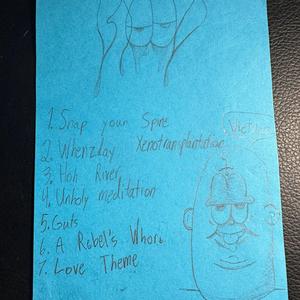 1. Snap your Spine
2. Whenzday Xenotransplantation
3. Hoh River
4. Unholy meditation
5. Guts
6. A Rebel's Whore
7. Love Theme